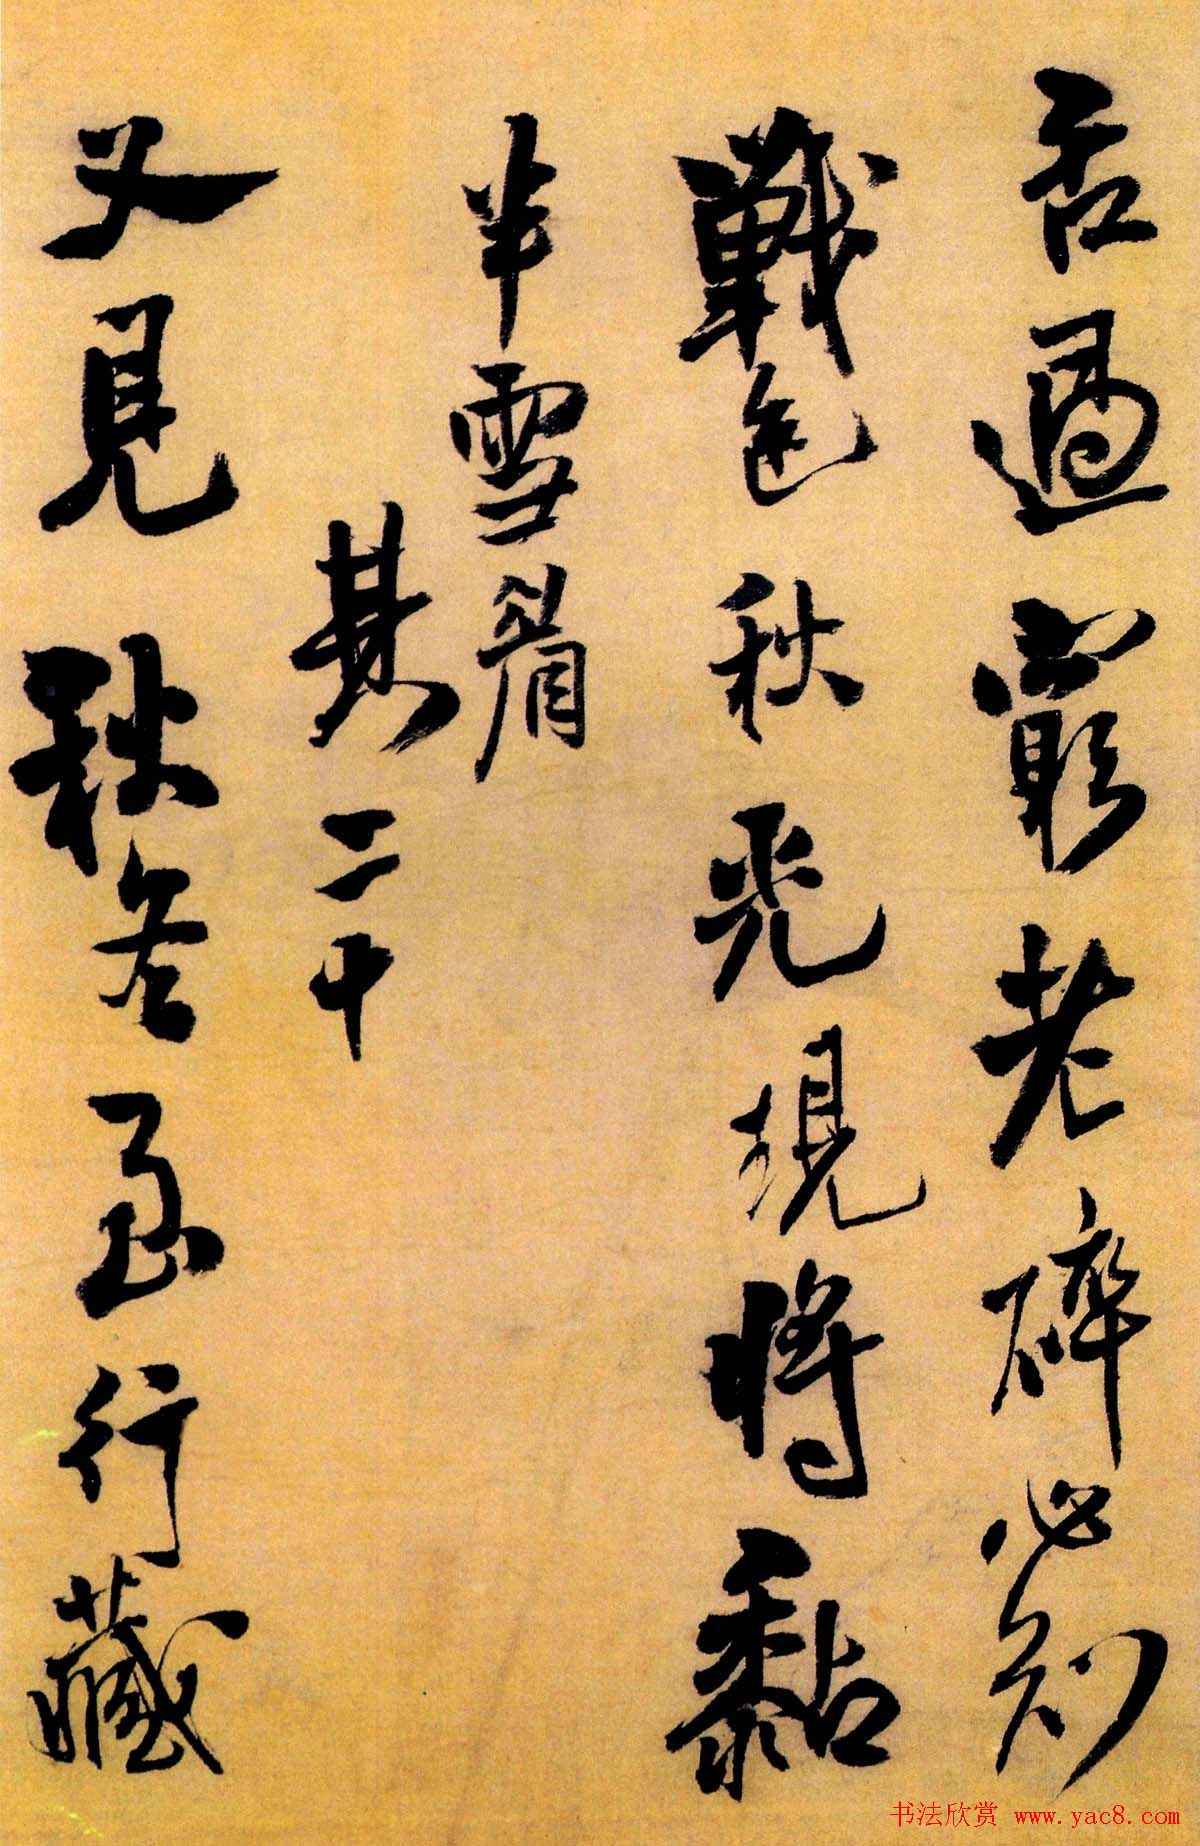 過窮老碎必
戰色秋光規將黏
半雪
其二十
又見秋冬行藏
书法欣赏 www.yac8.com